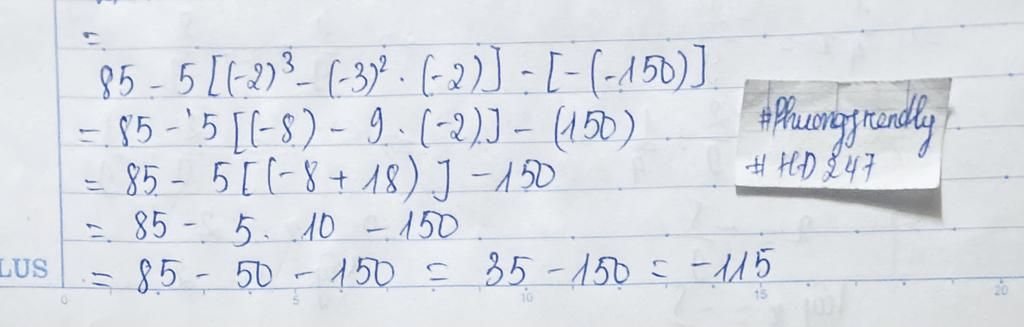 =
85 - 5 [(-2)³ - (-3)² . (-2)] - [-(-150)]
= 85 - 5 [(-8) - 9 . (-2)] - (150)
= 85 - 5 [(-8 + 18)] - 150
= 85 - 5 . 10 - 150
= 85 - 50 - 150 = 35 - 150 = -115
#Phuongfriendly
# HD 247
LUS
0 5 10 15 20